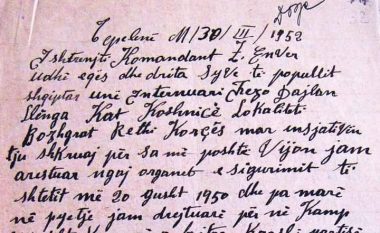 Doge
Tepelenë M/30/III/1952
I shtrenjti Komandant Z. Enver
udhë eqës dhe drita Syve të popullit
shqiptar unë Internuari Rexo Dajlan
Llënga Kat Koshnicë Lokaliteti
Bozhgrat Rethi Korçës mar insjativën
tju shkruaj për sa më poshtë Vijon jam
arestuar ngaj organet e sigurimit të
shtetit më 20 gusht 1950 dhe pa marë
në pyetje jam drejtuar për në Kamp